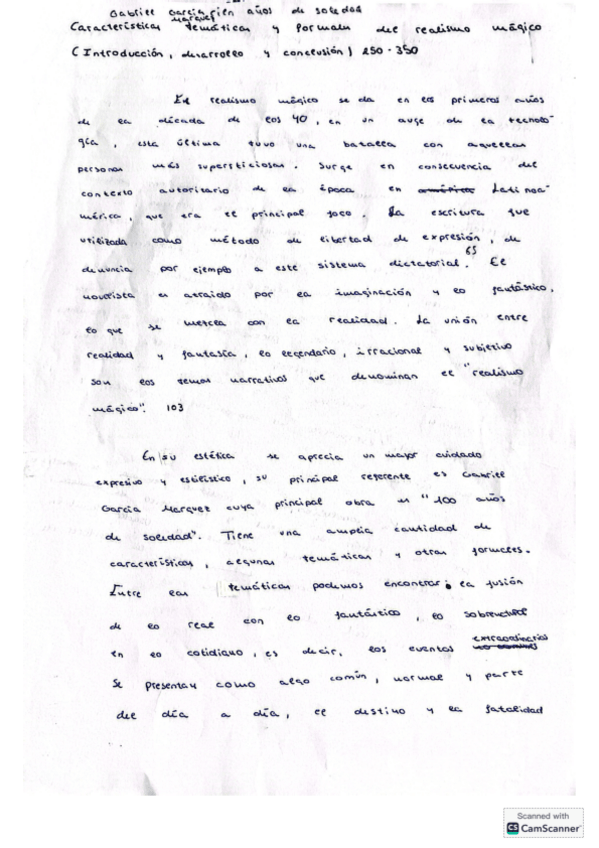 Gabriel García cien años de soledad
Marquez
Características temáticas y formales del realismo mágico
(Introducción, desarrollo y conclusión) 250 - 350
El realismo mágico se da en los primeros años
de la década de los 40, en un auge de la tecnolo-
gía, esta última tuvo una batalla con aquellas
personas más supersticiosas. Surge en consecuencia del
contexto autoritario de la época en Latinoa-
mérica, que era el principal foco. La escritura fue
utilizada como método de libertad de expresión, de
65
denuncia por ejemplo a este sistema dictatorial. El
novelista es atraído por la imaginación y lo fantástico,
lo que se mezcla con la realidad. La unión entre
realidad y fantasía, lo legendario, irracional y subjetivo
son los temas narrativos que denominan el "realismo
mágico". 103
En su estética se aprecia un mayor cuidado
expresivo y estilístico, su principal referente es Gabriel
García Marquez cuya principal obra es "100 años
de soledad". Tiene una amplia cantidad de
características, algunas temáticas y otras formales.
Entre las temáticas podemos encontrar: la fusión
de lo real con lo fantástico, lo sobrenatural
extraordinarios
en lo cotidiano, es decir, los eventos
se presentan como algo común, normal y parte
del día a día, el destino y la fatalidad
Scanned with
CS CamScanner